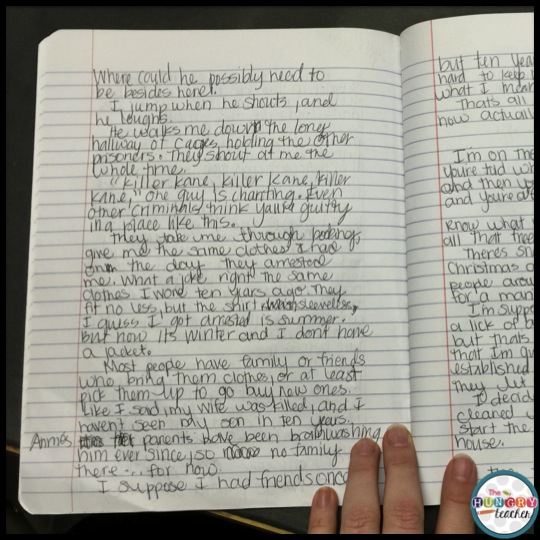 Where could he possibly need to
be besides here?
I jump when he shouts, and
he laughs.
He walks me down the long
hallway of cages holding the other
prisoners. They shout at me the
whole time.
"Killer Kane, killer Kane, killer
Kane," one guy is chanting. Even
other criminals think you're guilty
in a place like this.
They take me through bookings,
give me the same clothes I had
on the day they arrested
me. What a joke, right the same
clothes I wore ten years ago. They
fit no less, but the shirt was sleeveless,
I guess I got arrested is summer.
But now its winter and I dont have
a jacket.
Most people have family or friends
who bring them clothes, or at least
pick them up to go buy new ones.
Like I said, my wife was killed, and I
havent seen my son in ten years.
Annie's parents have been brainwashing
him ever since, so no family
there... for now.
I suppose I had friends once
but ten yea
hard to keep
what I mean
Thats all
now actuall
I'm on the
you're tid w
and then y
and you're a
Know what
all that free
Theres sn
Christmas
people arou
for a man
I'm suppo
a lick of
but thats
that I'm gu
established
They let
I decid
cleaned
start the
house.
The
HUNGRY
teacher